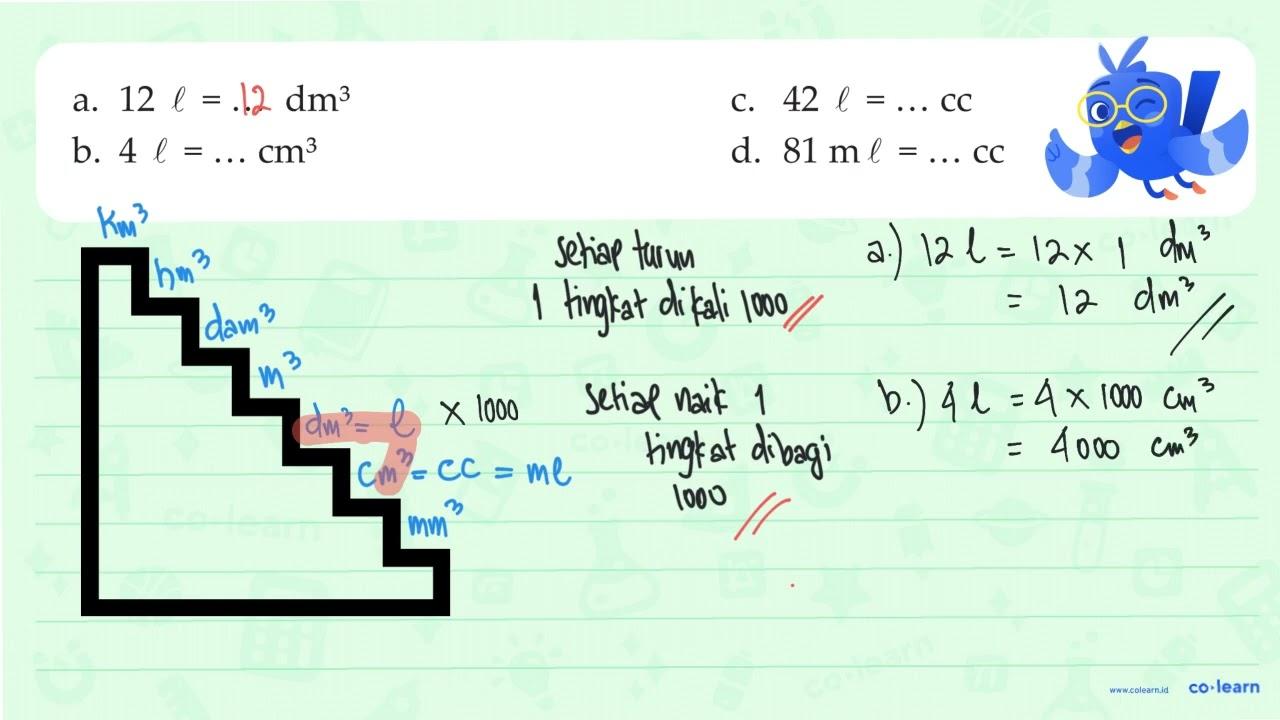 a. 12 ℓ = .12. dm³
b. 4 ℓ = ... cm³
c. 42 ℓ = ... cc
d. 81 mℓ = ... cc
km³
hm³
dam³
m³
dm³ = l × 1000
cm³ = cc = ml
mm³
setiap turun
1 tingkat dikali 1000
setiap naik 1
tingkat dibagi
1000
a.) 12 l = 12 × 1 dm³
= 12 dm³
b.) 4 l = 4 × 1000 cm³
= 4000 cm³
co·learn
co·learn
co·learn
co·learn
www.colearn.id co·learn